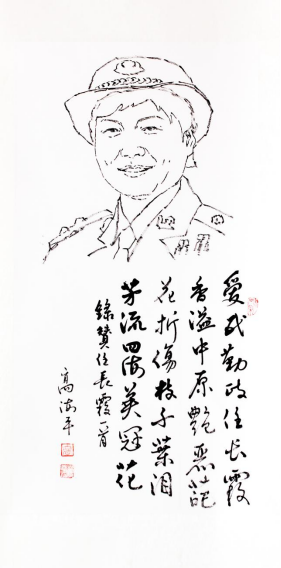 愛民勤政任长霞
香溢中原艷葩
花折傷枝千葉泪
芳流四海英冠花
錄赞任長霞一首
高海平